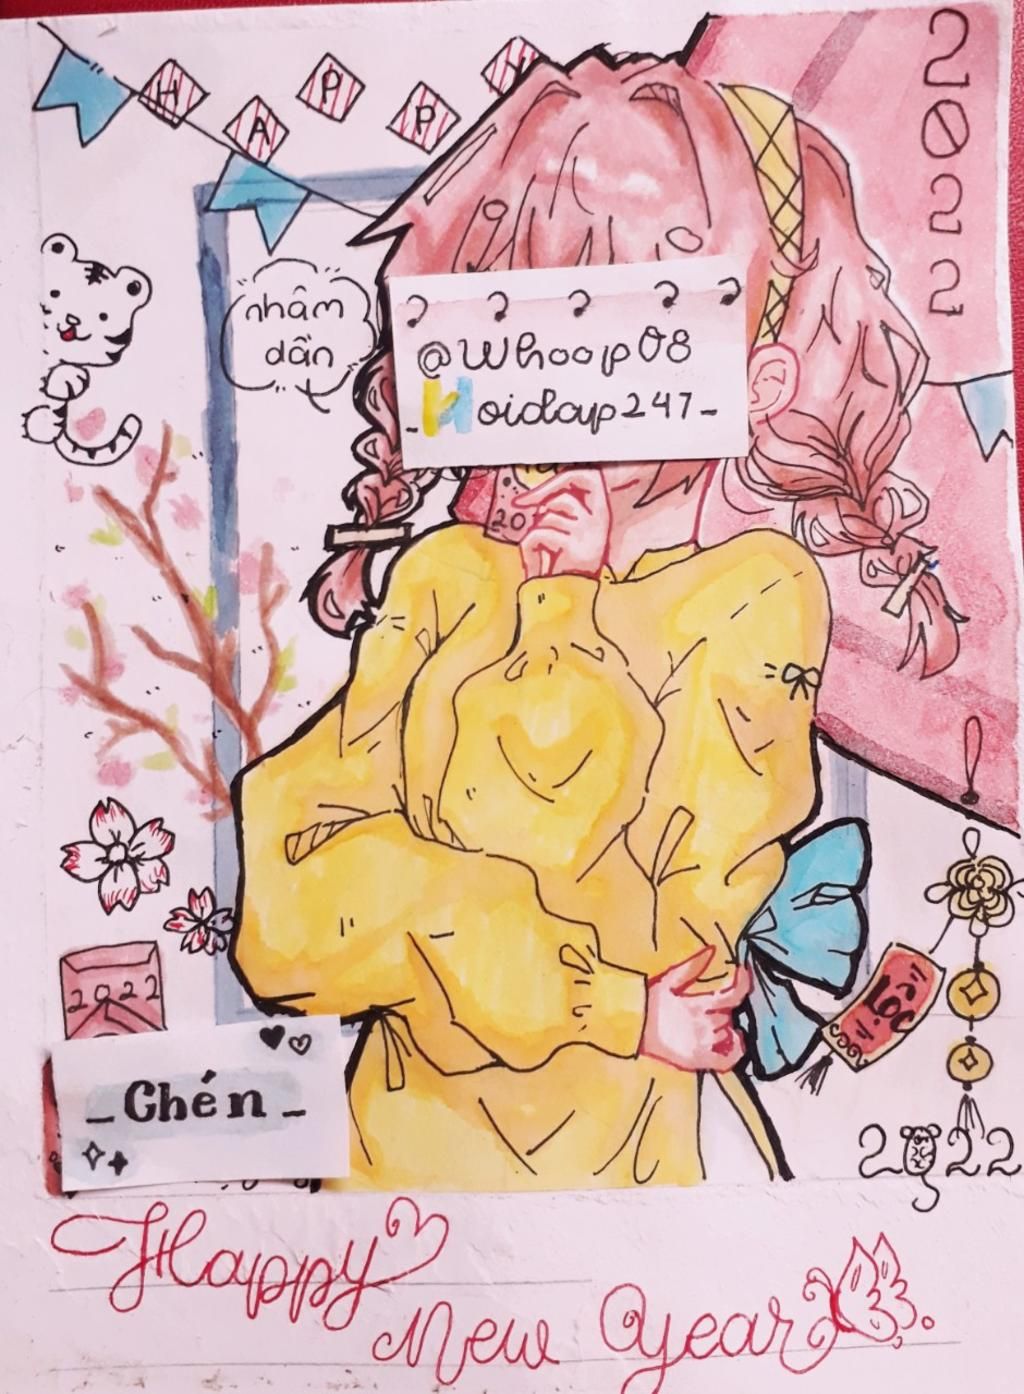 HAPPY
2022
nhâm
dần
@Whoop08
_Hoidap247_
20
2022
Lộc
_Chén_
2022
Happy
New Year